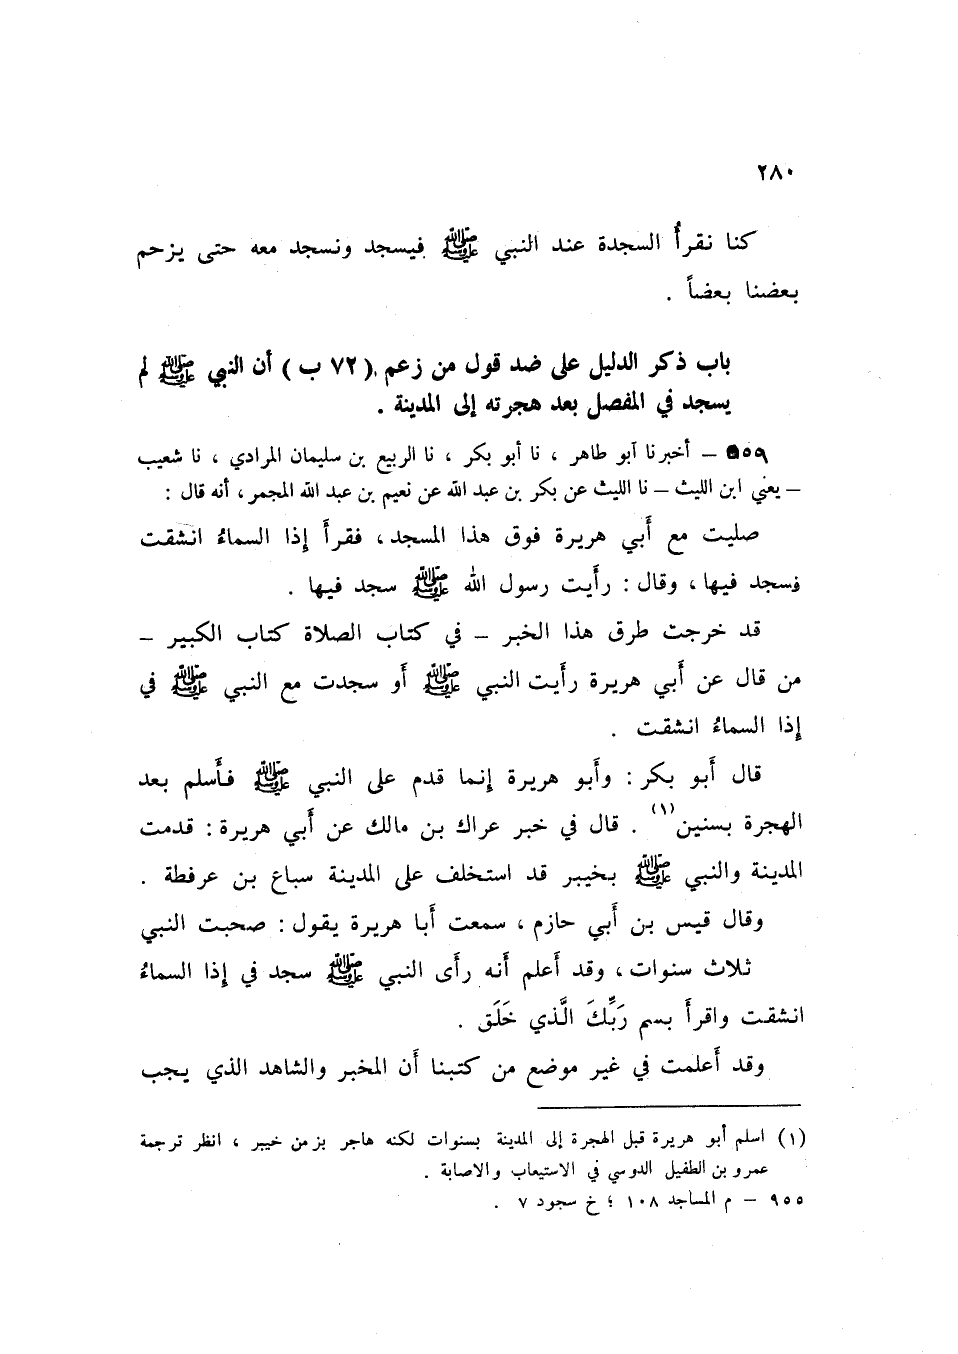 ٢٨٠
كنا نقرأُ السجدة عند النبي ﷺ فيسجد ونسجد معه حتى يزحم
بعضنا بعضاً .
باب ذكر الدليل على ضد قول من زعم ( ٧٢ ب ) أن النبي ﷺ لم
يسجد في المفصل بعد هجرته إلى المدينة .
٥٥٩ – أخبرنا أبو طاهر ، نا أبو بكر ، نا الربيع بن سليمان المرادي ، نا شعيب
– يعني ابن الليث – نا الليث عن بكر بن عبد الله عن نعيم بن عبد الله المجمر ، أنه قال :
صليت مع أَبي هريرة فوق هذا المسجد ، فقرأَ إِذا السماءُ انشقت
فسجد فيها ، وقال : رأَيت رسول الله ﷺ سجد فيها .
قد خرجت طرق هذا الخبر – في كتاب الصلاة كتاب الكبير –
من قال عن أَبي هريرة رأَيت النبي ﷺ أَو سجدت مع النبي ﷺ في
إِذا السماءُ انشقت .
قال أَبو بكر : وأَبو هريرة إِنما قدم على النبي ﷺ فأَسلم بعد
الهجرة بسنين (١) . قال في خبر عراك بن مالك عن أَبي هريرة : قدمت
المدينة والنبي ﷺ بخيبر قد استخلف على المدينة سباع بن عرفطة .
وقال قيس بن أَبي حازم ، سمعت أَبا هريرة يقول : صحبت النبي
ثلاث سنوات ، وقد أَعلم أَنه رأَى النبي ﷺ سجد في إِذا السماءُ
انشقت واقرأَ بسم رَبِّكَ الَّذي خَلَق .
وقد أَعلمت في غير موضع من كتبنا أَن المخبر والشاهد الذي يجب
(١) اسلم أبو هريرة قبل الهجرة إلى المدينة بسنوات لكنه هاجر بزمن خيبر ، انظر ترجمة
عمرو بن الطفيل الدوسي في الاستيعاب والاصابة .
٩٥٥ – م المساجد ١٠٨ ؛ خ سجود ٧ .